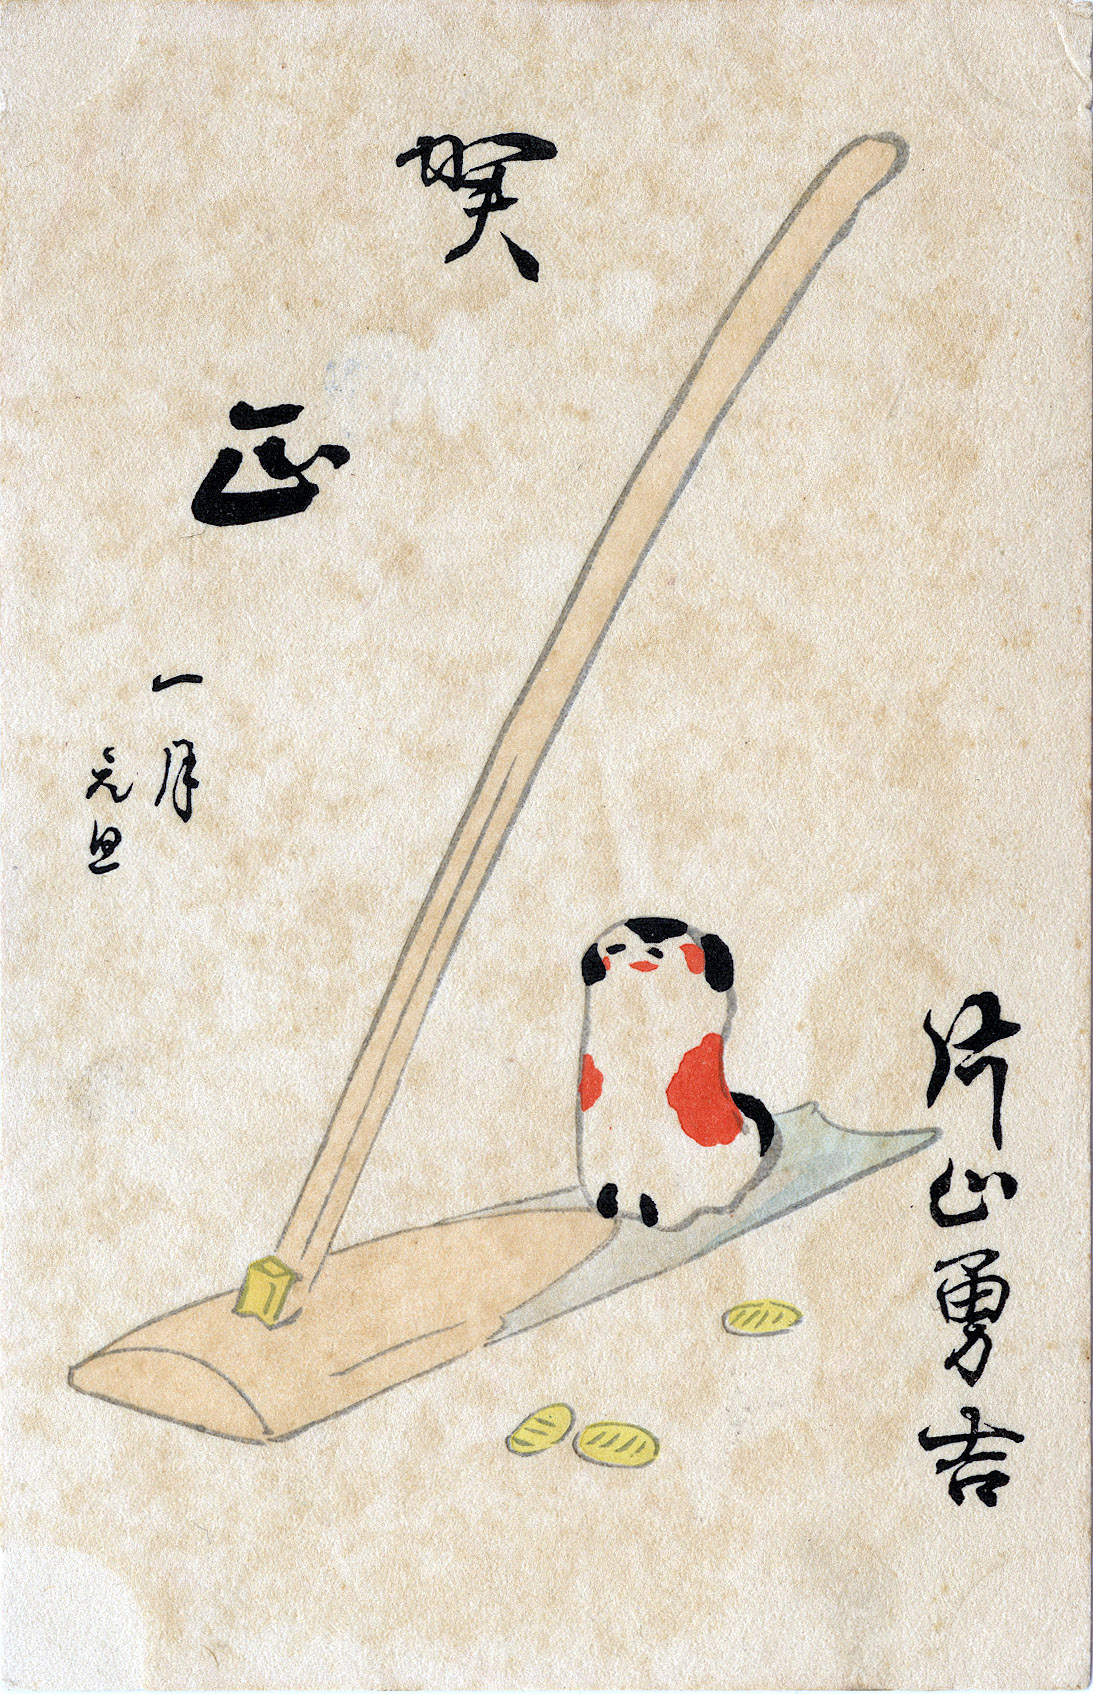 賀
正
一月
元旦
片山勇吉